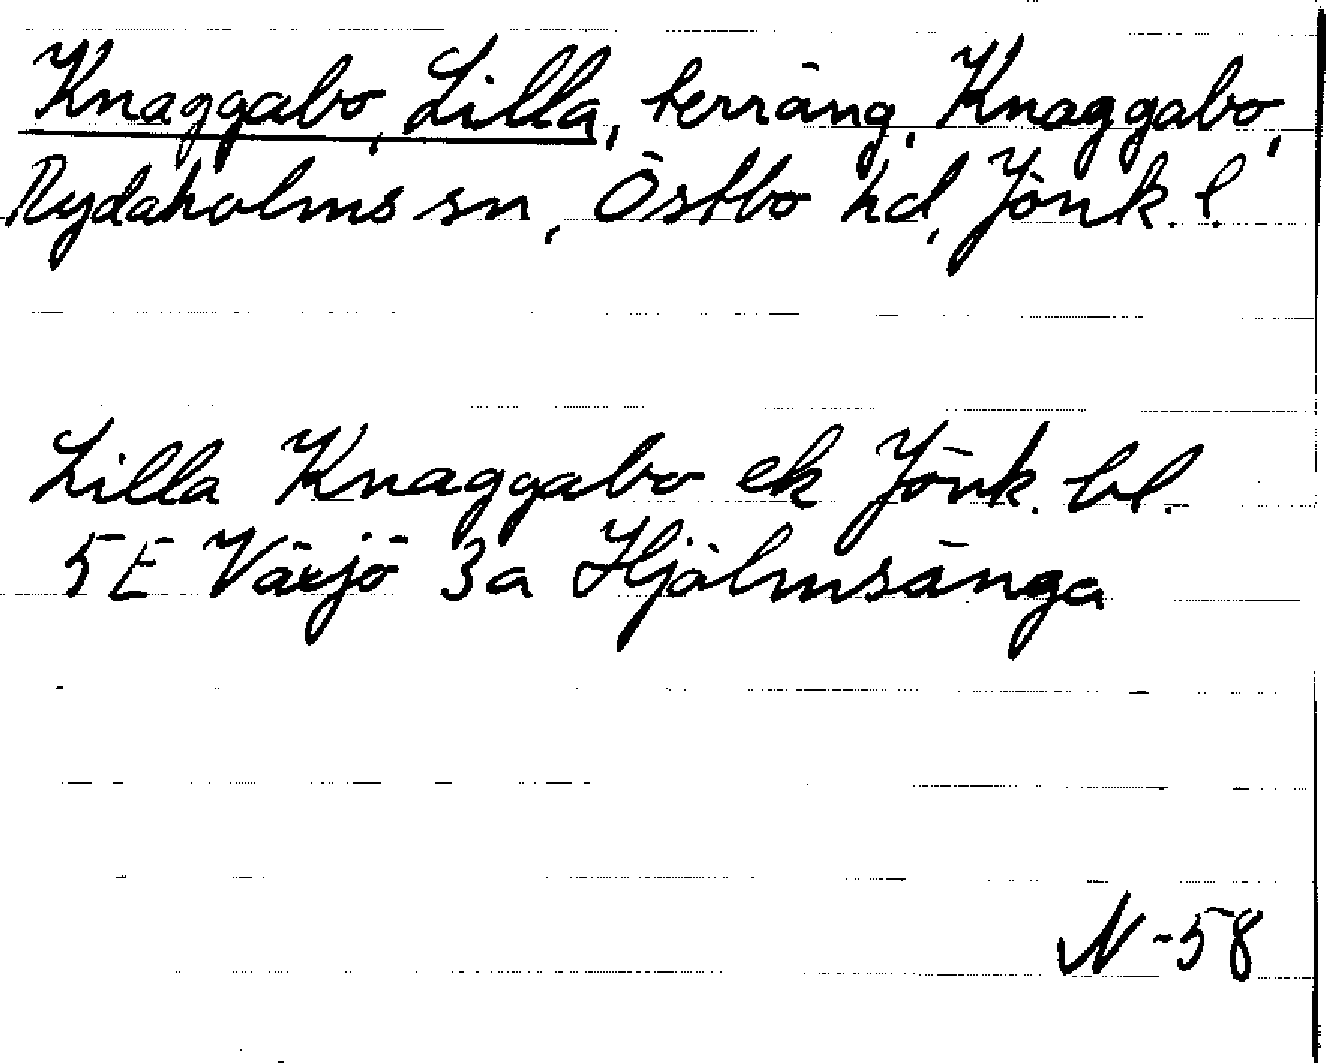 Knaggabo, Lilla, terräng, Knaggabo,
Rydaholms sn, Östbo hd, Jönk. l.
Lilla Knaggabo ek Jönk. bl.
5E Växjö 3a Hjälmsänga
N-58